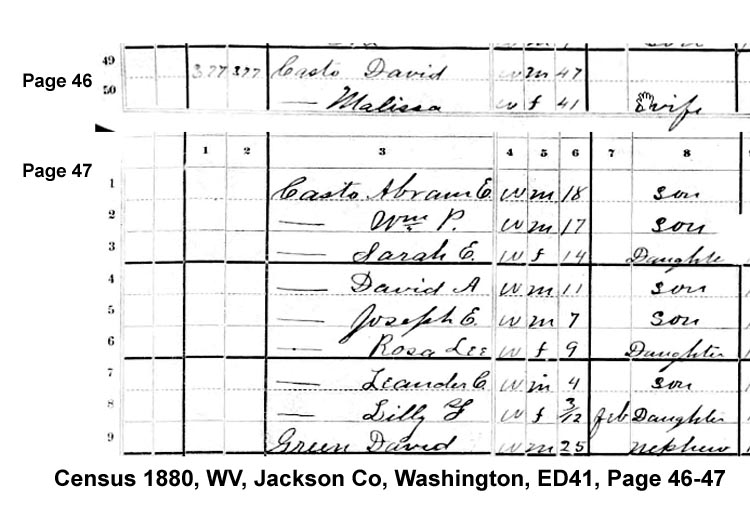 49 377 377 Casto David w m 47
Page 46
50 — Malissa w f 41 wife
Page 47
1 2 3 4 5 6 7 8
1 Casto Abram E. w m 18 son
2 — Wm P. w m 17 son
3 — Sarah E. w f 14 Daughte
4 — David A w m 11 son
5 — Joseph E. w m 7 son
6 — Rosa Lee w f 9 Daughter
7 — Leander C w m 4 son
8 — Lilly F w f 3/12 feb Daughter
9 Green David w m 25 nephew
Census 1880, WV, Jackson Co, Washington, ED41, Page 46-47